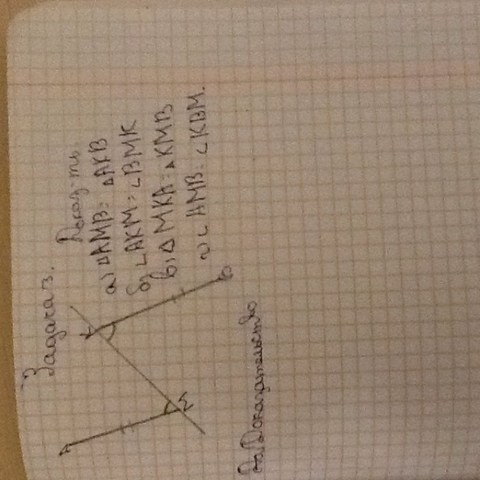 Задача 3.
Доказ-ть
а) ΔAMB = ΔAKB
б) ∠AKM = ∠BMK
в) ΔMKA = ΔKMB
г) ∠AMB = ∠KBM.
K
B
M
A
Доказательство